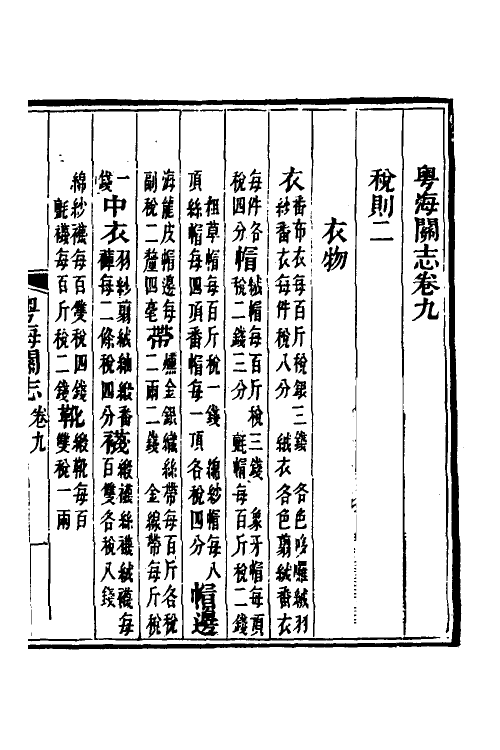 粤海關志卷九
稅則二
衣物
衣番布衣每百斤稅銀三錢　各色嗶囉絨羽
紗番衣每件稅八分　絨衣各色剪絨番衣
每件各稅四分帽絨帽每百斤稅三錢　象牙帽每頂
稅二錢三分　氈帽每百斤稅二錢
粗草帽每百斤稅一錢　綿紗帽每八
頂絲帽每四頂番帽每一頂各稅四分帽邊
海龍皮帽邊每副稅二釐四毫帶燻金銀絨絲帶每百斤各稅
二兩二錢　金線帶每斤稅
一錢中衣羽紗剪絨紬緞番
褲每二條稅四分襪緞襪絲襪絨襪每
百雙各稅八錢
綿紗襪每百雙稅四錢
氈襪每百斤稅二錢靴緞靴每百
雙稅一兩
粤海關志　卷九　一